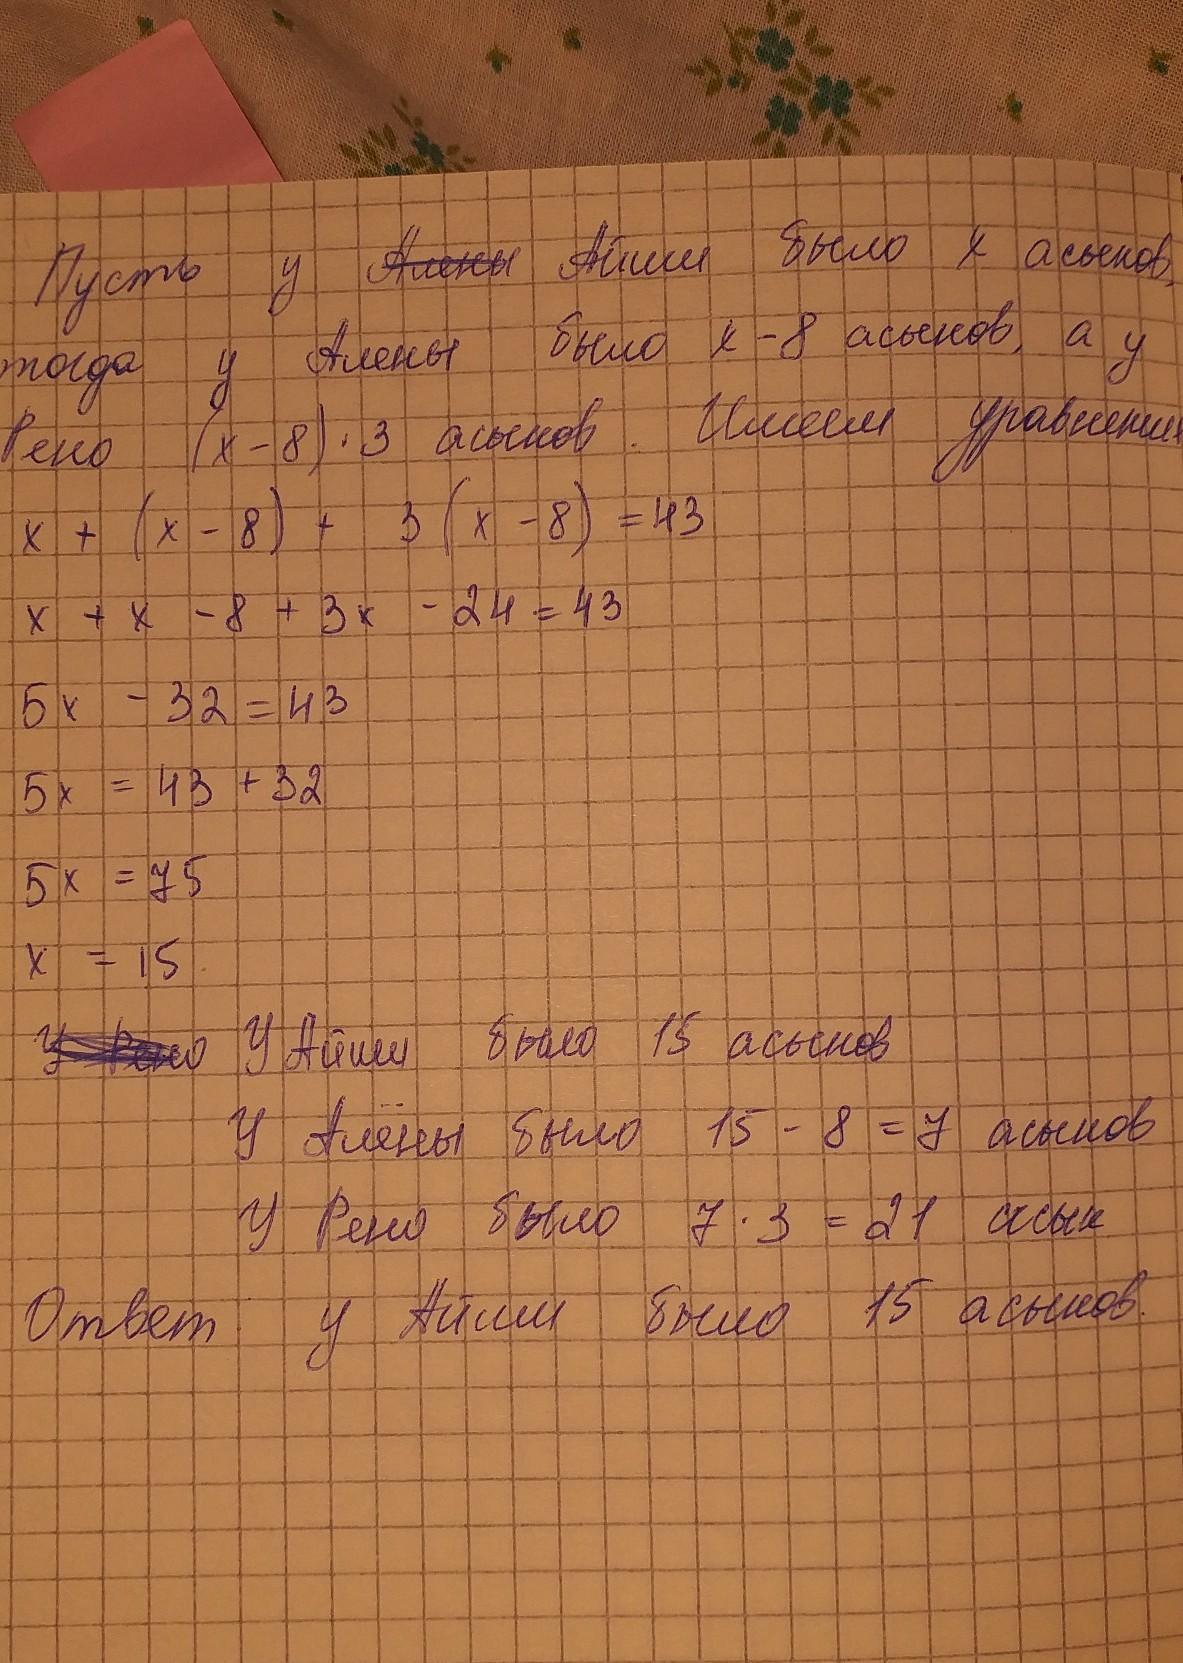 Пусть у Алены Айши было х асыков,
тогда у Алены было х - 8 асыков, а у
Рено (х - 8) · 3 асыков. Имеем уравнение
х + (х - 8) + 3 (х - 8) = 43
х + х - 8 + 3х - 24 = 43
5х - 32 = 43
5х = 43 + 32
5х = 75
х = 15
У Рено У Айши было 15 асыков
У Алёны было 15 - 8 = 7 асыков
У Рено было 7 · 3 = 21 асык
Ответ у Айши было 15 асыков.